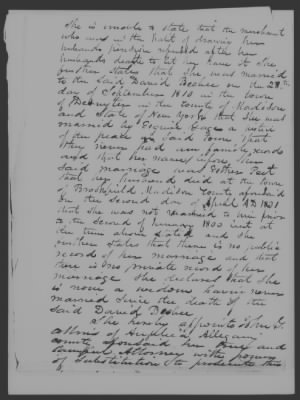 She is unable to state that the merchant
who was in the habit of drawing her
husbands pension refused after her
husbands death to let her have it She
further states that She was married
to the Said David on the 28th
day of September 1810 in the town
of in the County of Madison
and State of New York that She was
married by Esquire Gage a justice
of the peace in Said town that
they never had any family record
and that her name before her
Said marriage was Esther
that her husband died at the town
of Brookfield Madison County
On the Second day of April AD 1831
that She was not married to him prior
to the Second of January 1800 but at
the time above stated and She
further states that there is no public
record of her marriage and that
there is no private record of her
marriage She declares that She
is now a widow having never
married Since the death of the
Said David
She hereby appoints John G.
Collins of Angelica Allegany
County her true and
lawful Attorney with power
of Substitution to prosecute this